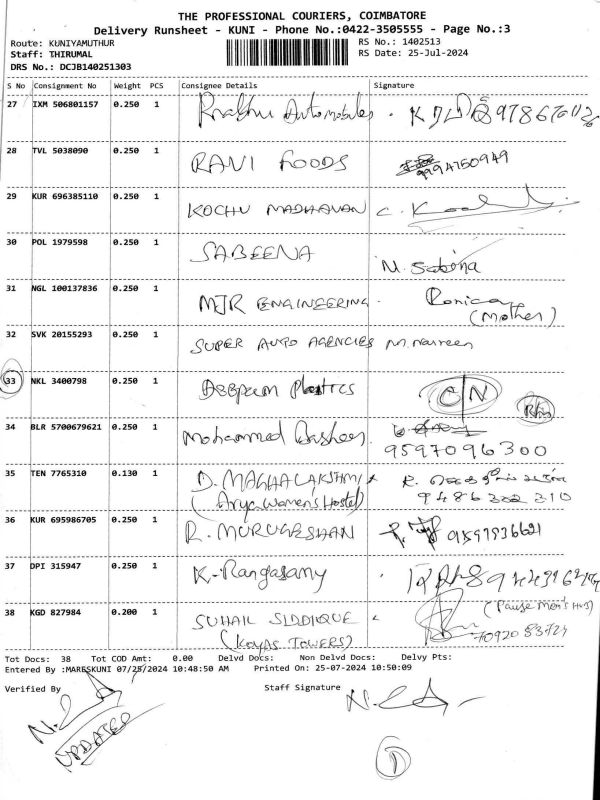 THE PROFESSIONAL COURIERS, COIMBATORE
Delivery Runsheet - KUNI - Phone No.:0422-3505555 - Page No.:3
Route: KUNIYAMUTHUR RS No.: 1402513
Staff: THIRUMAL RS Date: 25-Jul-2024
DRS No.: DCJB140251303
S No Consignment No Weight PCS Consignee Details Signature
27 IXM 506801157 0.250 1 Prabhu Automobiles
28 TVL 5038090 0.250 1 RANI FOODS 9994750949
29 KUR 696385110 0.250 1 KOCHU MADHAVAN
30 POL 1979598 0.250 1 SABEENA M. Sabina
31 NGL 100137836 0.250 1 MJR ENGINEERING (Mother)
32 SVK 20155293 0.250 1 SUPER AUTO AGENCIES M. Naveen
33 NKL 3400798 0.250 1 Plastics
34 BLR 5700679621 0.250 1 Mohammed
9597096300
35 TEN 7765310 0.130 1 D. MAGHALAKSHMI
(Arya Women's Hostel)
36 KUR 695986705 0.250 1 R. MURUGESHAN
37 DPI 315947 0.250 1 K. Rangasamy
38 KGD 827984 0.200 1 SUHAIL SIDDIQUE
(KOYAS TOWERS)
Tot Docs: 38 Tot COD Amt: 0.00 Delvd Docs: Non Delvd Docs: Delvy Pts:
Entered By :MARESKUNI 07/25/2024 10:48:50 AM Printed On: 25-07-2024 10:50:09
Verified By Staff Signature
UPDATED
1